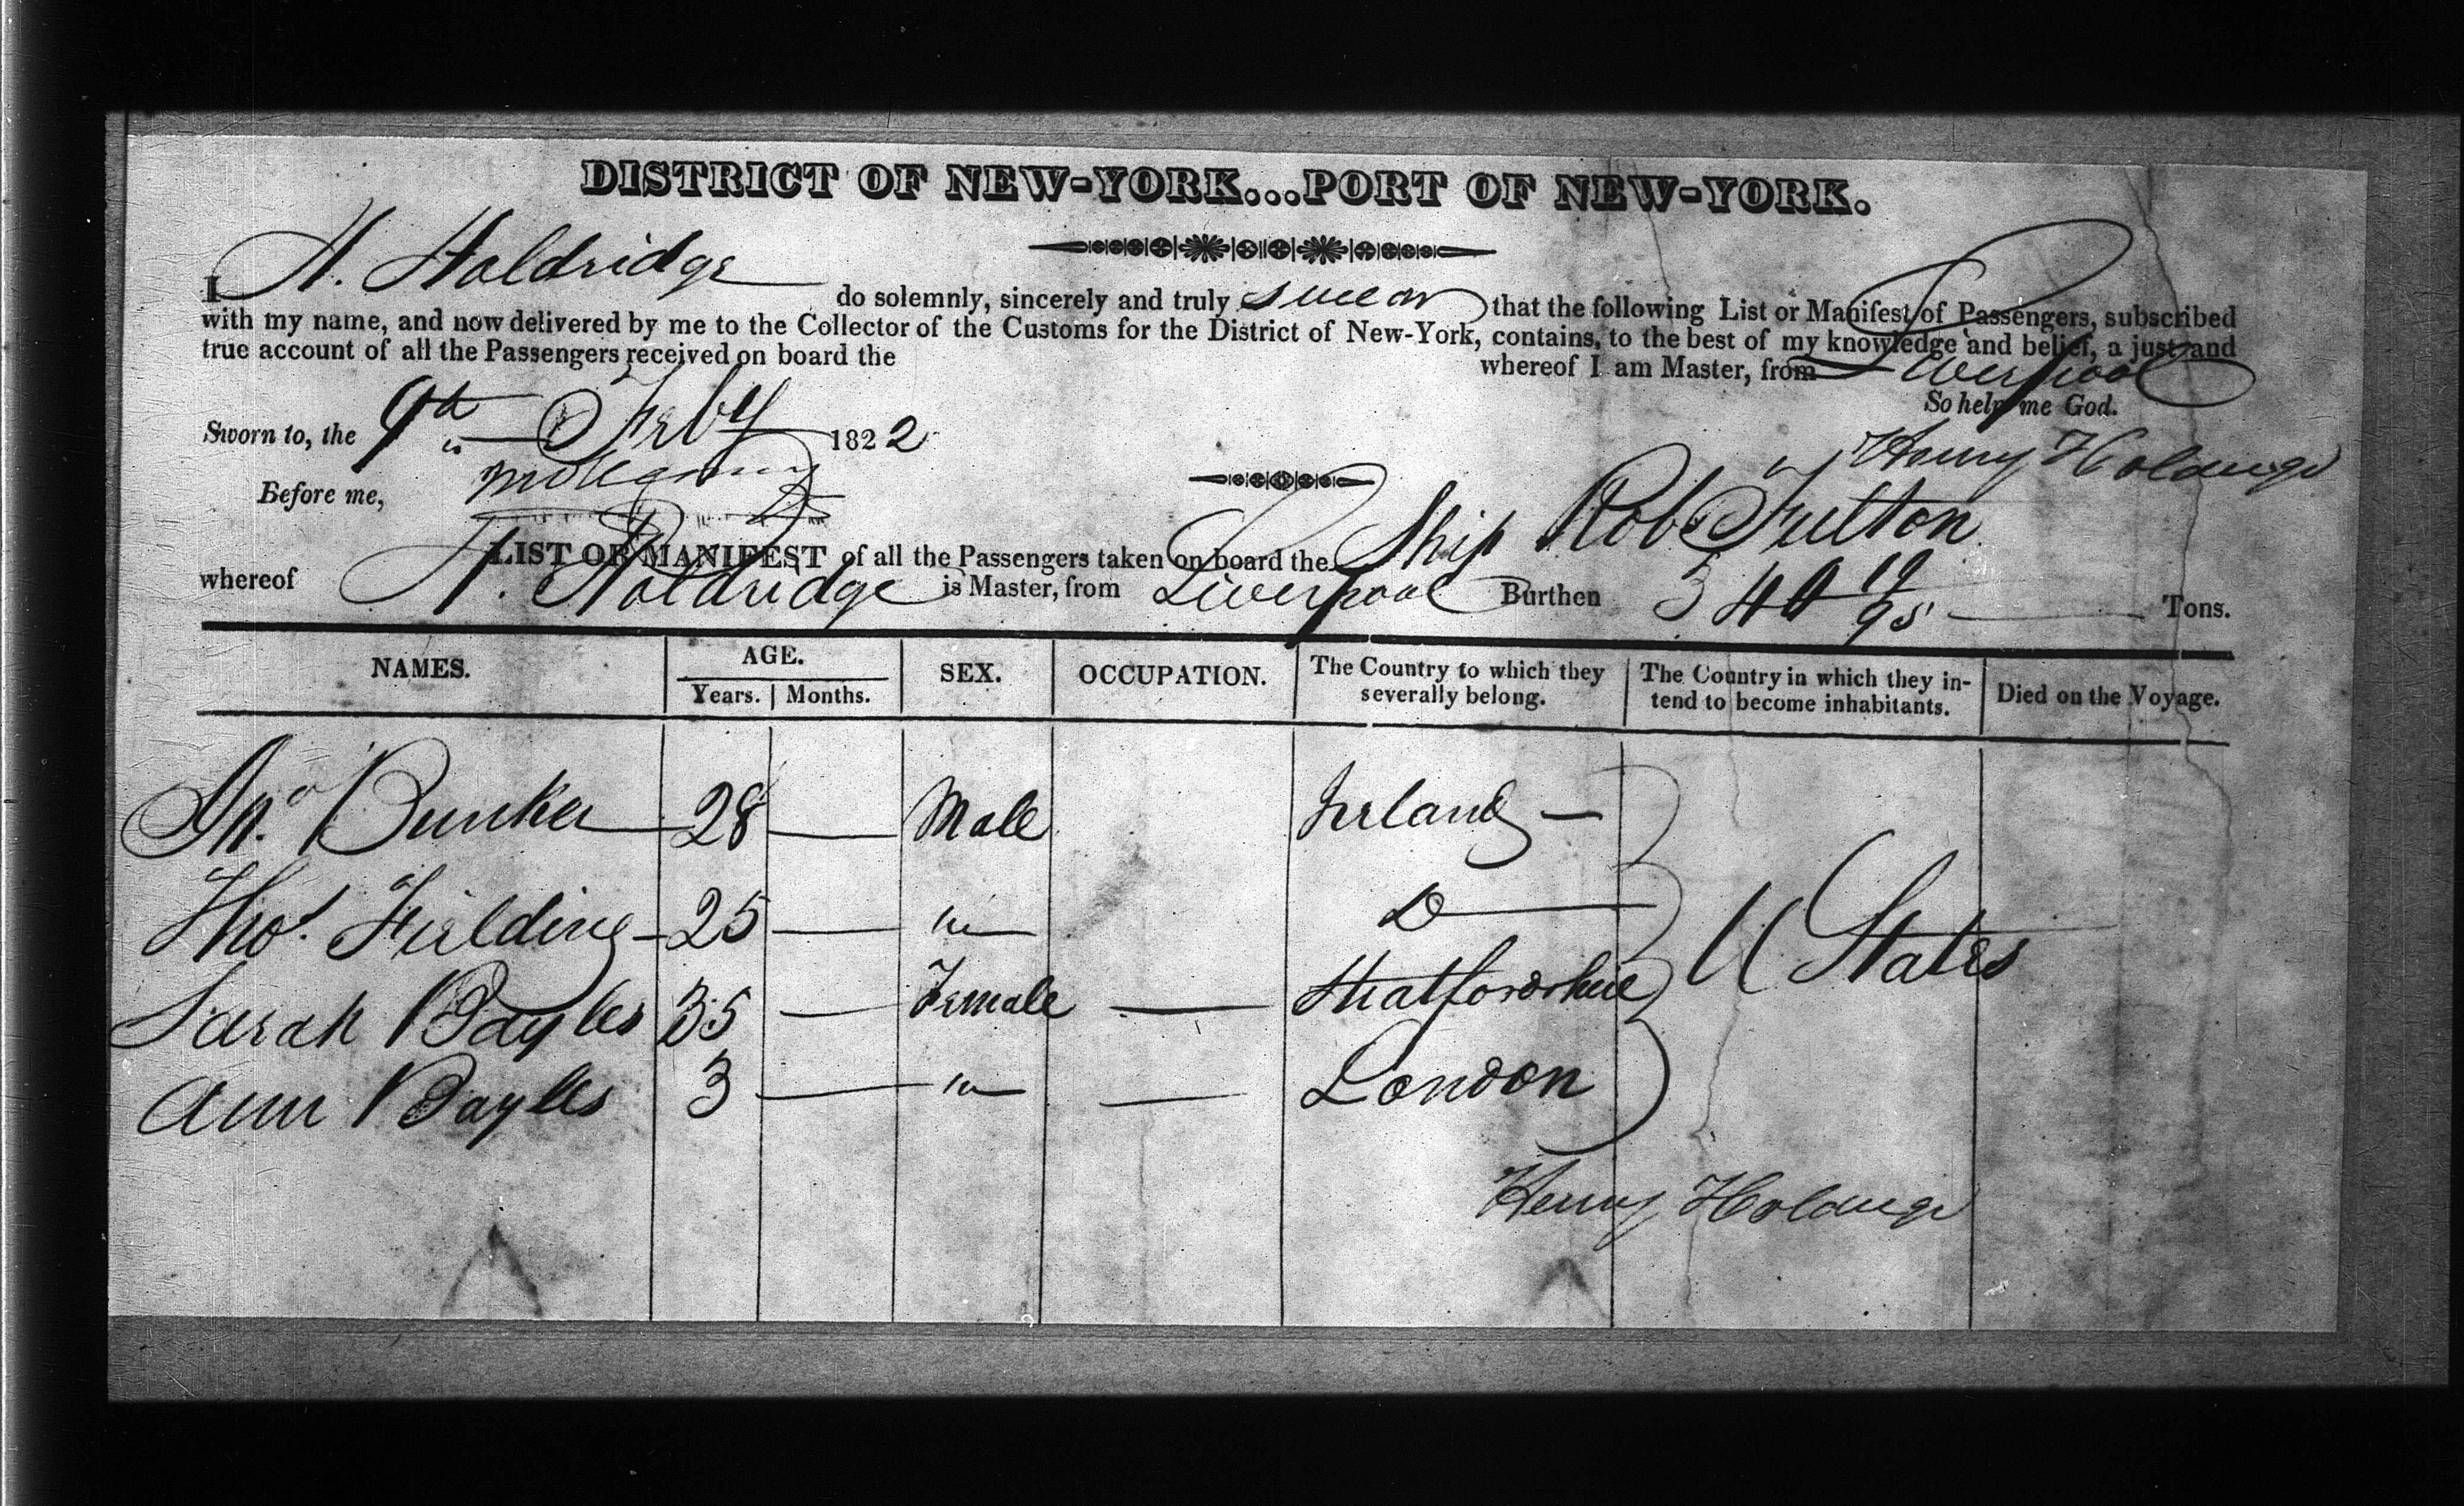 DISTRICT OF NEW-YORK...PORT OF NEW-YORK.
I H. Holdridge do solemnly, sincerely and truly swear that the following List or Manifest of Passengers, subscribed
with my name, and now delivered by me to the Collector of the Customs for the District of New-York, contains, to the best of my knowledge and belief, a just and
true account of all the Passengers received on board the whereof I am Master, from Liverpool
So help me God.
Sworn to, the 9th Feby 1822
Henry Holdridge
Before me,
LIST OR MANIFEST of all the Passengers taken on board the Ship Robt Fulton
whereof H. Holdridge is Master, from Liverpool Burthen 340 19/95 Tons.
NAMES. AGE. SEX. OCCUPATION. The Country to which they severally belong. The Country in which they intend to become inhabitants. Died on the Voyage.
Years. Months.
Jno. Bunker 28 — Male Ireland —
Thos. Fielding 25 — " D —
U States
Sarah Bayles 35 — Female — Stratfordshire
Ann Bayles 3 — " — London
Henry Holdridge